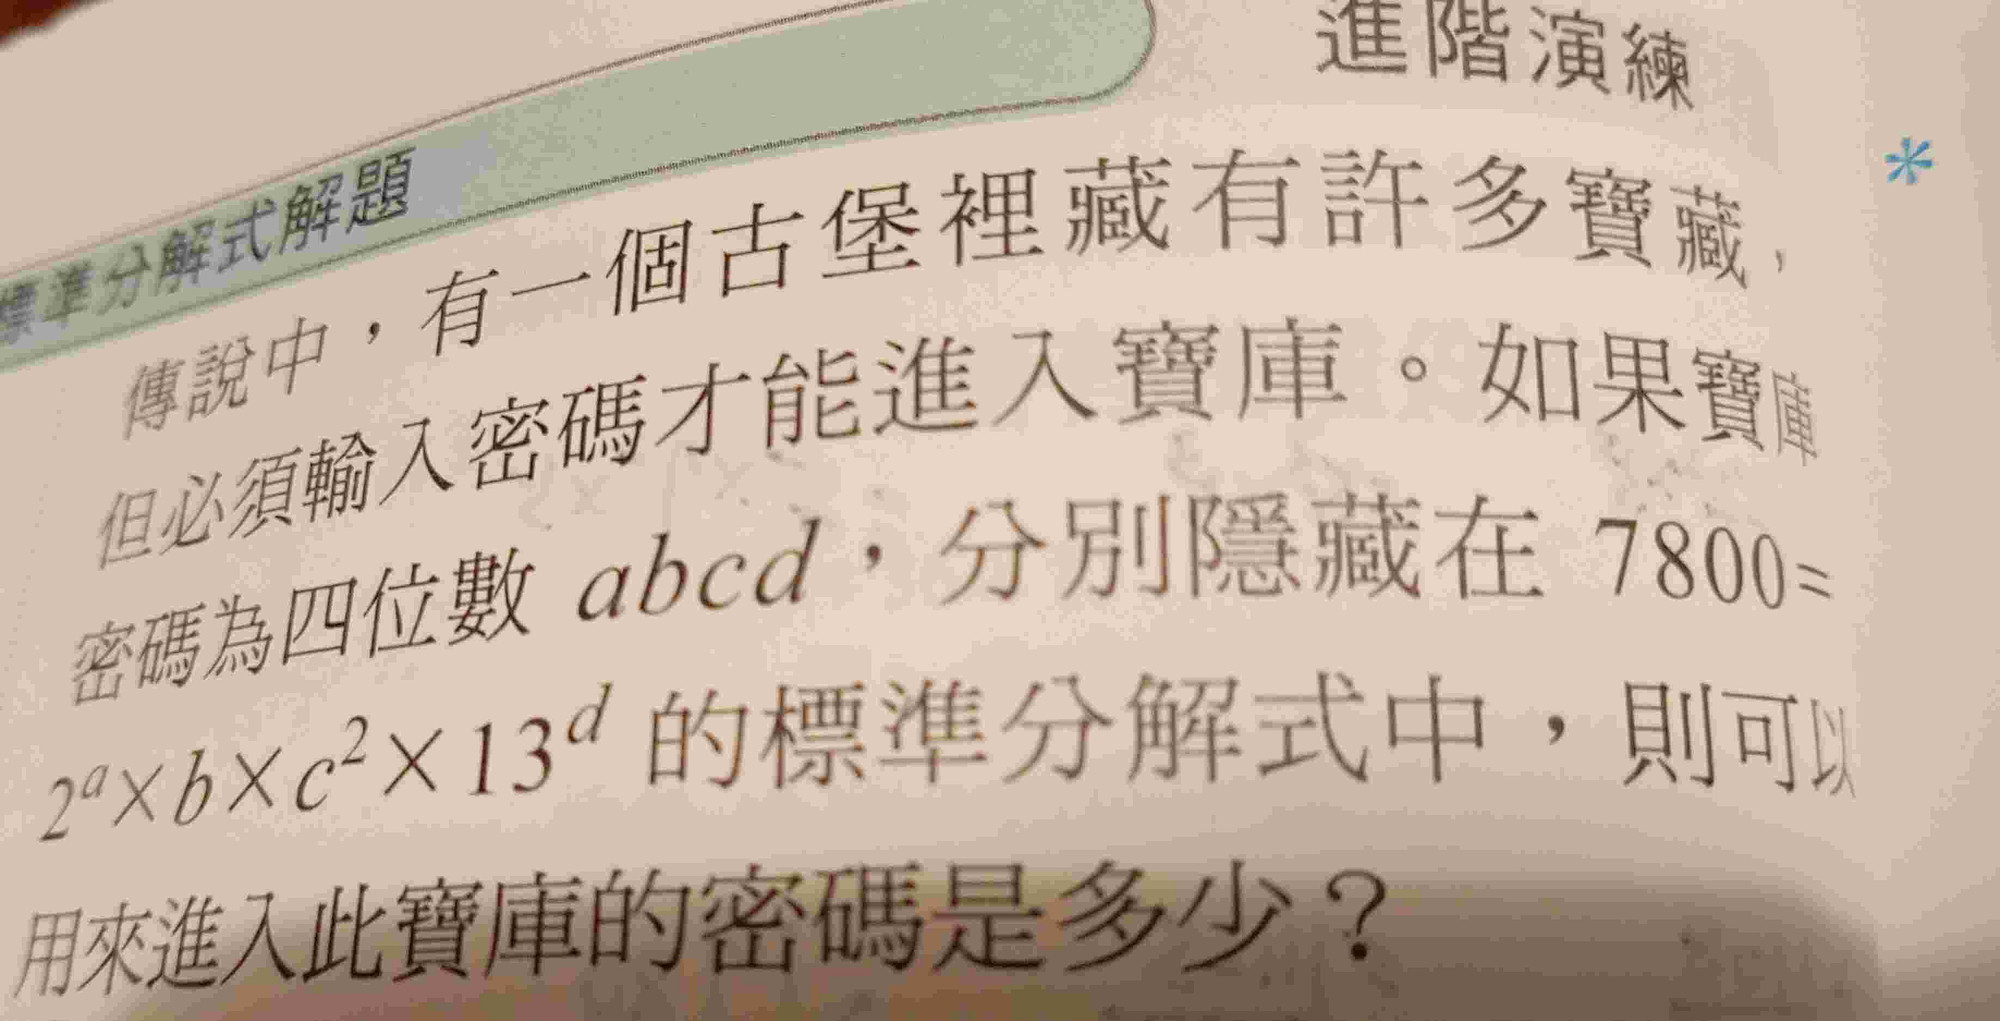 進階演練
標準分解式解題
*
傳說中，有一個古堡裡藏有許多寶藏，
但必須輸入密碼才能進入寶庫。如果寶庫
密碼為四位數 abcd，分別隱藏在 7800=
2ᵃ×b×c²×13ᵈ 的標準分解式中，則可以
用來進入此寶庫的密碼是多少？